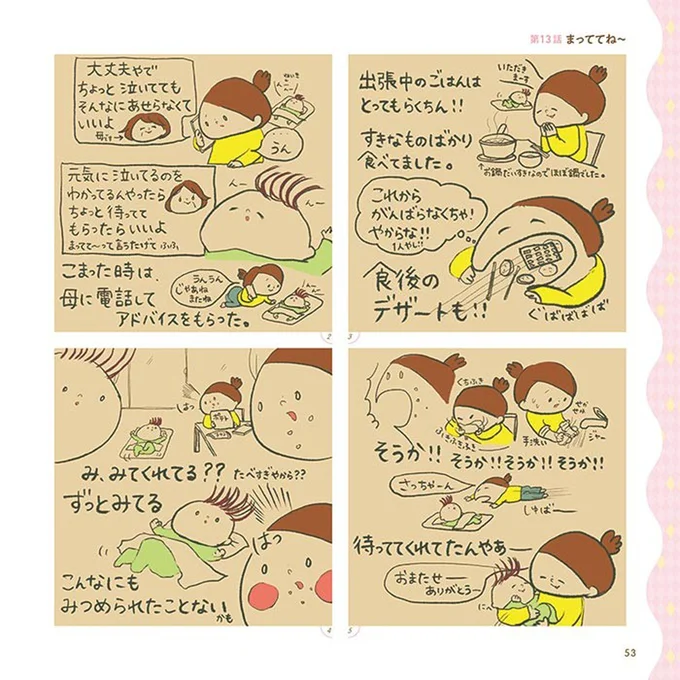 第13話 まっててね～
大丈夫やで
ちょっと泣いてても
そんなにあせらなくて
いいよ
母です→
うん
元気に泣いてるのを
わかってるんやったら
ちょっと待ってて
もらったらいいよ
まってて～って言うたげて ふふ
んー
んー
こまった時は、
母に電話して
アドバイスをもらった。
うんうん
じゃあね
またね
2
出張中のごはんは
とってもらくちん!!
いただき
まーす
すきなものばかり
食べてました。
↑お鍋だいすきなのでほぼ鍋でした。
これから
がんばらなくちゃ!
やからな!!
1人やし!!
食後の
デザートも!!
ぐばばばば
3
はっ
み、みてくれてる??
たべすぎやから??
ずっとみてる
はっ
こんなにも
みつめられたことない
かも
4
くちふき
手洗い
ジャー
そうか!! そうか!! そうか!! そうか!!
さっちゃーん
しゅばー
待っててくれてたんやあー
おまたせー
ありがとうー
にん
5
53